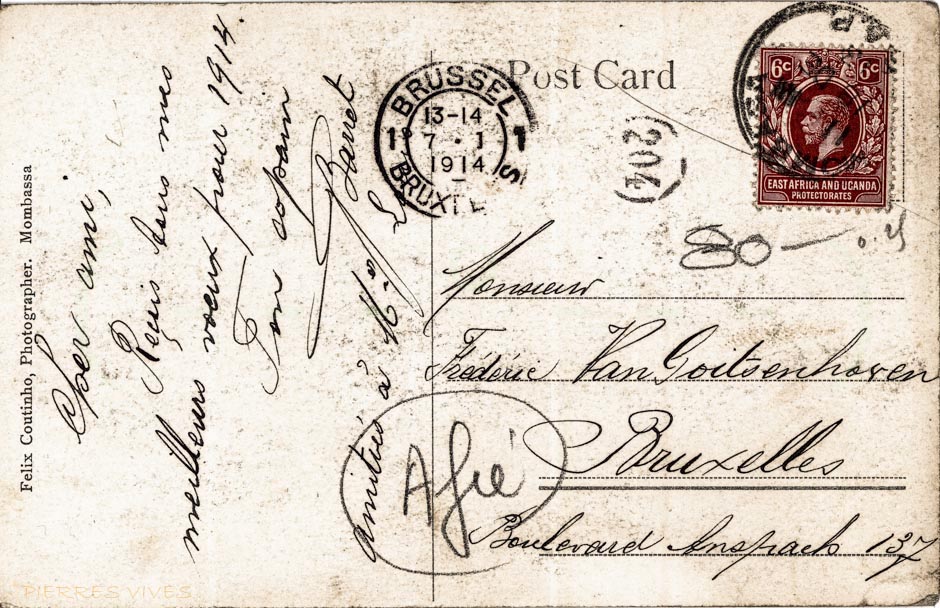 Post Card
6c 6c
EAST AFRICA AND UGANDA
PROTECTORATES
BRUSSEL
13-14
7 · 1
1914
BRUX
(204)
80 —
Felix Coutinho, Photographer. Mombassa
Cher ami,
Reçois tous mes
meilleurs voeux pour 1914.
Ton copain
amitiés à
Monsieur
Frédéric Van Goitsenhoven
Bruxelles
Boulevard Anspach 137
PIERRES VIVES